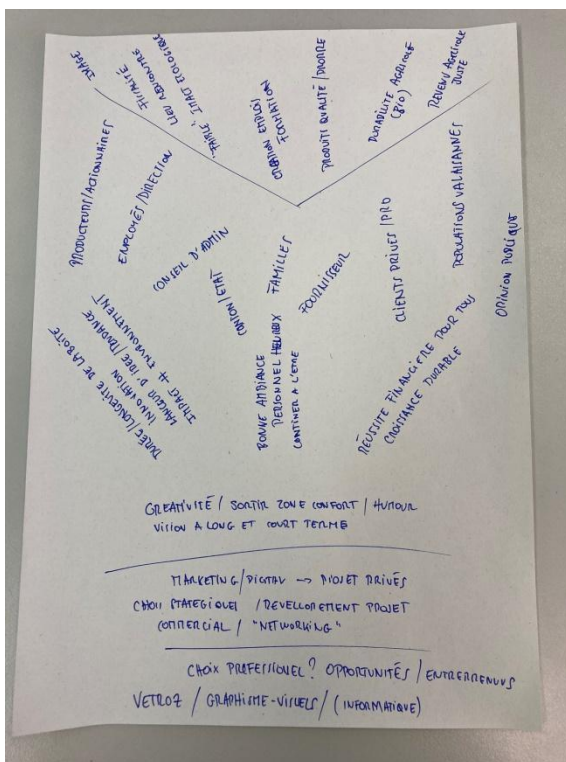 IMAGE
FISCALITÉ
LIEU RENCONTRE
"FAIBLE" IMPACT ECOLOGIQUE
CREATION EMPLOI
FORMATION
PRODUITS QUALITÉ / PROPRE
DURABILITE AGRICOLE
(BIO)
REVENU AGRICOLE
JUSTE
PRODUCTEURS/ACTIONNAIRES
EMPLOYÉS/DIRECTION
CONSEIL D'ADMIN
CANTON/ETAT
FAMILLES
FOURNISSEUR
CLIENTS PRIVES/PRO
POPULATIONS VALAISANNES
OPINION PUBLIQUE
DUREE/LONGEVITE DE LA BOITE
INNOVATION
LANCEUR D'IDEE/TENDANCE
IMPACT + ENVIRONNEMENT
BONNE AMBIANCE
PERSONNEL HEUREUX
CONTINER A L'ETRE
REUSSITE FINANCIERE POUR TOUS
CROISSANCE DURABLE
CREATIVITÉ / SORTIR ZONE CONFORT / HUMOUR
VISION A LONG ET COURT TERME
MARKETING/DIGITAL → PROJET PRIVÉS
CHOIX STATEGIQUES / DEVELLOPEMENT PROJET
COMMERCIAL / "NETWORKING"
CHOIX PROFESSIONEL? OPPORTUNITÉS / ENTREPRENEUR
VETROZ / GRAPHISME-VISUELS / (INFORMATIQUE)